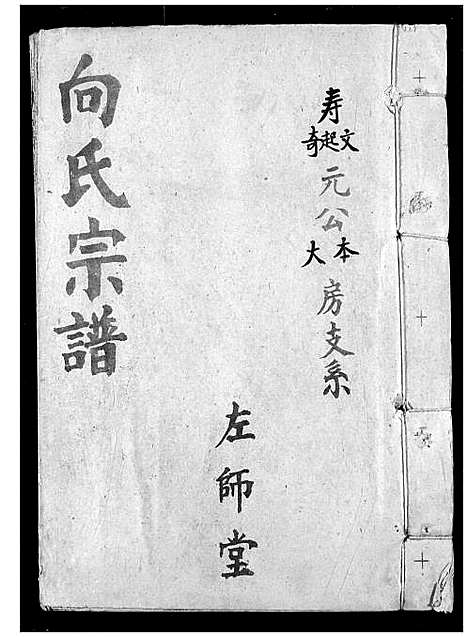 寿
文起奇
元公
本大
房支系
左師堂
向氏宗譜